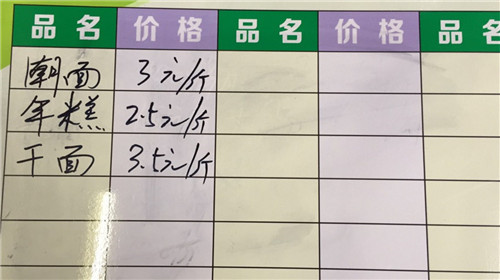 品名 价格 品名 价格 品名
潮面 3元/斤
年糕 2.5元/斤
干面 3.5元/斤